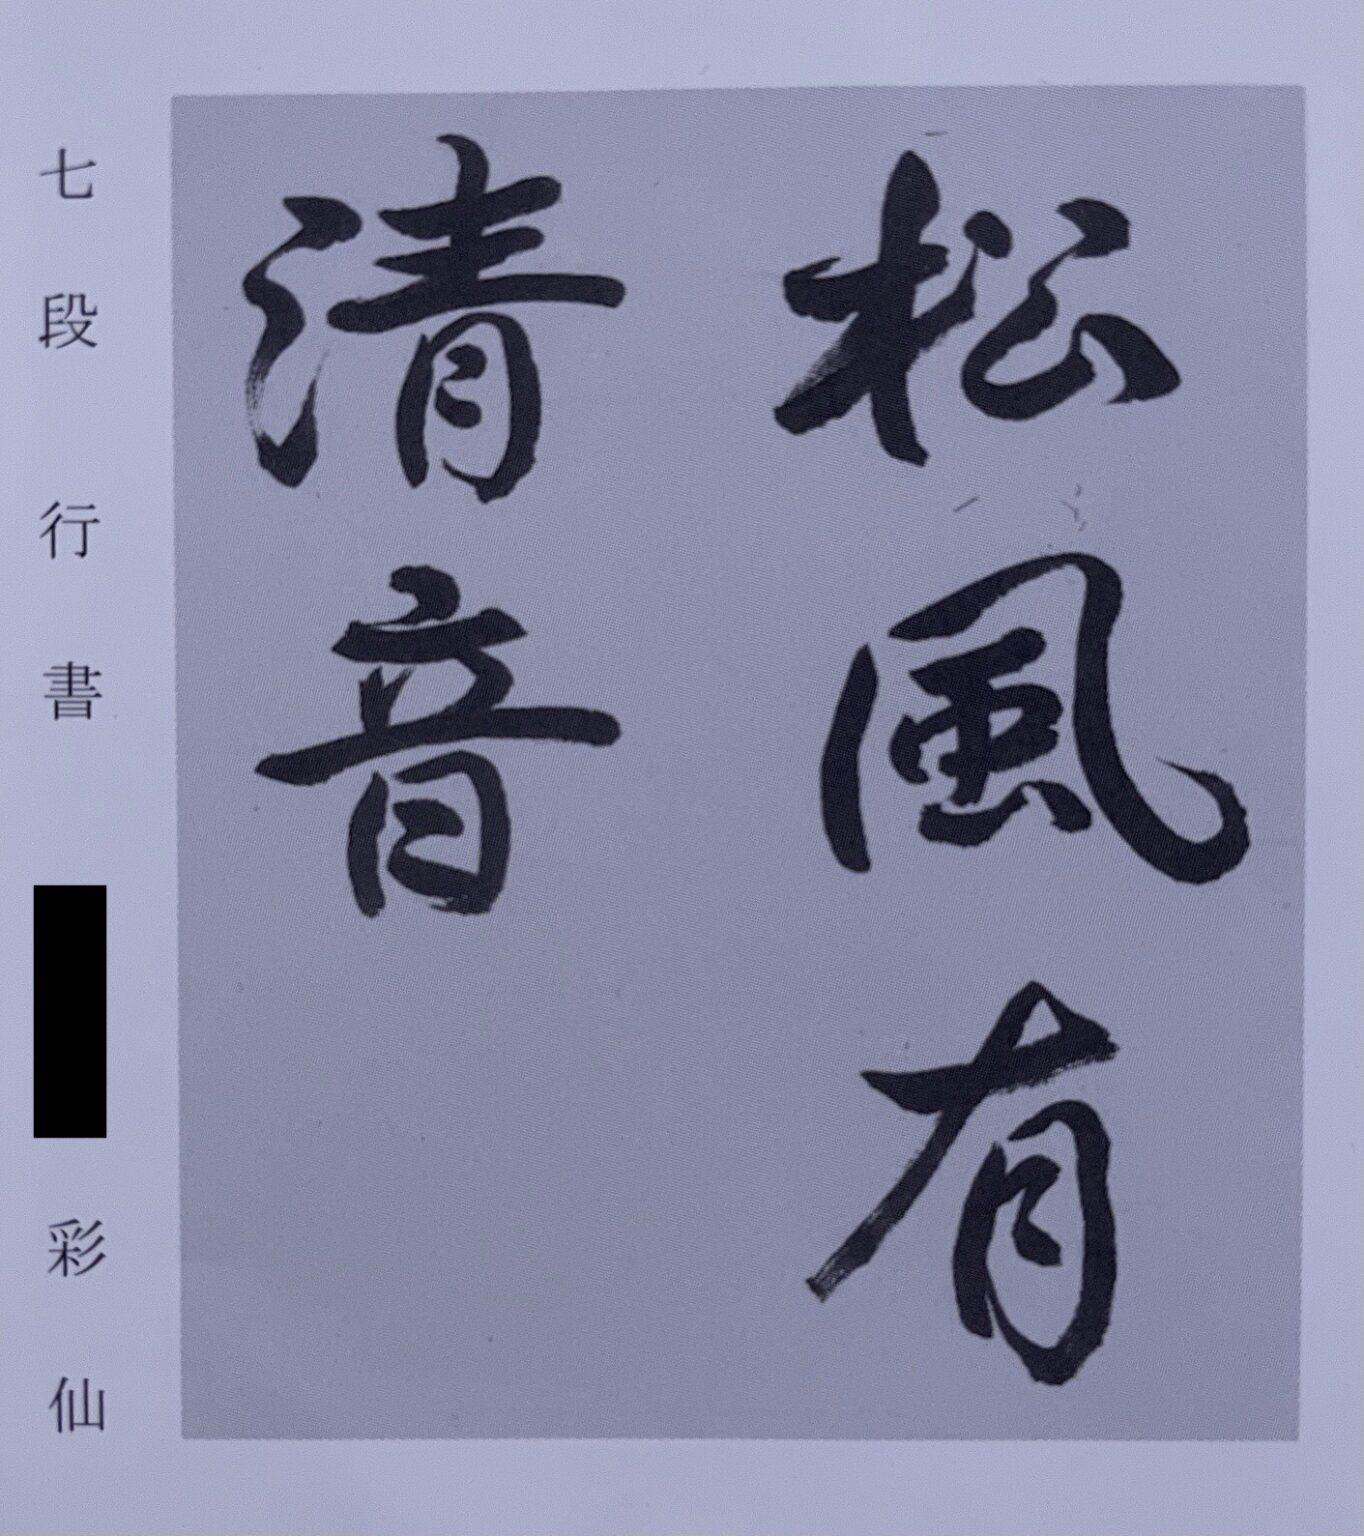 松風有
清音
七段 行書 彩仙